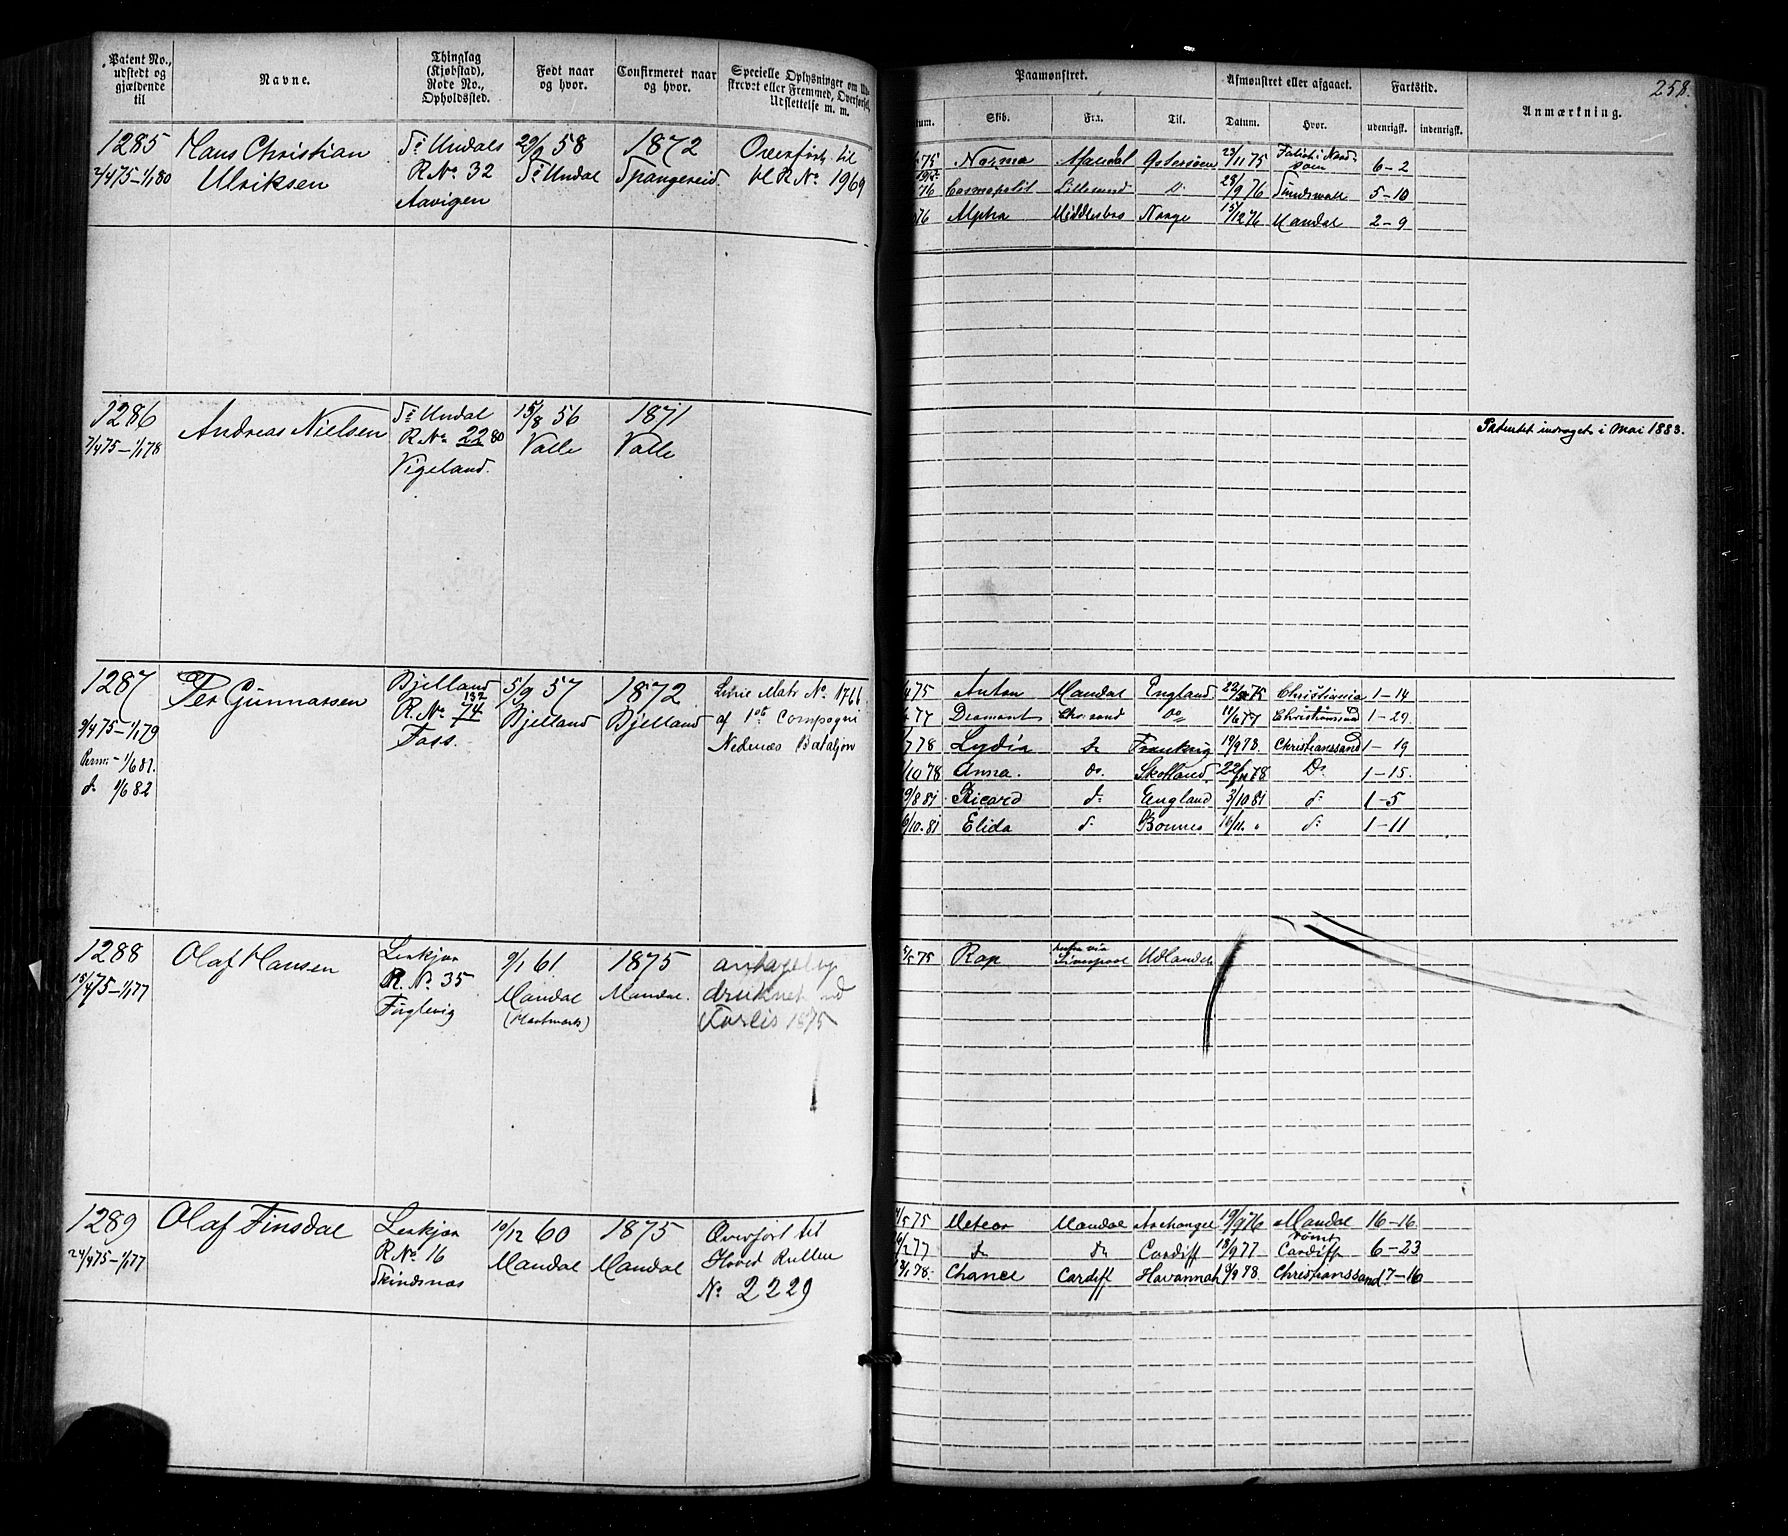 Patent No., udstedt og gjældende til
Navne.
Thinglag (Kjøbstad), Rode No., Opholdssted.
Født naar og hvor.
Confirmeret naar og hvor.
Specielle Oplysninger om
Udslettelse m. m.
Paamønstret.
Skib.
Fra.
Til.
Afmønstret eller afgaaet.
Datum.
Hvor.
Fartstid.
udenrigsk.
indenrigsk.
Anmærkning.
258.
1285
2/4 75 – 1/1 80
Hans Christian
Ulriksen
Sø Undals
R No 32
Aavigen
29/9 58
Sø Undal
1872
Spangereid
Overført til
hl R No 1969
75 Norma Mandal Østersøen 23/11 75 6 – 2
76 Cosmopolit Lillesand Do 28/9 76 Sundsvall 5 – 10
76 Alpha Middlesbro Norge 15/12 76 Mandal 2 – 9
1286
7/4 75 – 1/1 78
Andreas Nielsen
Sø Undal
R No 22 80
Vigeland.
15/8 56
Valle
1871
Valle
Patentet inddraget i Mai 1883.
1287
9/4 75 – 1/1 79
1/6 81.
do 1/6 82
Per Gunnarsen
Bjelland
132
R. No 74
Foss.
5/9 57
Bjelland
1872
Bjelland
Linie Mats No. 1766
af 1ste Compagni
Nedenæs Bataljon
75 Anton Mandal England 75 Christiania 1 – 14
77 Diamant Chr.sand Do 77 Christianssand 1 – 29
78 Lydia do Frankrig 19/9 78. Christianssand 1 – 19
/10 78 Anna. Do. Skotland 78 Do 1 – 15.
9/8 81 Ricard do England 3/10 81 do 1 – 5
/10. 81 Elida do do 1 – 11
1288
15/4 75 – 1/1 77
Olaf Hansen
R. No. 35
Fuglevig
9/1 61
Mandal
1875
Mandal.
antagelig
druknet ved
Forlis 1875
75 Rap
Liverpool Udlandet
1289
24/4 75 – 1/1 77
Olaf Finsdal
R No 16
Skindsnæs
10/12 60
Mandal
1875
Mandal
Overført til
Hoved Rullen
No 2229
75 Meteor Mandal Archangel 19/9 76 Mandal 16 – 16
77 do do Cardiff 18/9 77 rømt Cardiff 6 – 23
78. Chance Cardiff Havannah 9/9 78. Christianssand 7 – 16